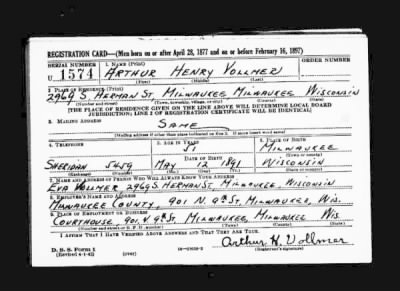 REGISTRATION CARD—(Men born on or after April 28, 1877 and on or before February 16, 1897)
SERIAL NUMBER 1. NAME (Print) ORDER NUMBER
U 1574 ARTHUR HENRY VOLLMER
(First) (Middle) (Last)
2. PLACE OF RESIDENCE (Print)
2969 S. HERMAN ST. MILWAUKEE MILWAUKEE WISCONSIN
(Number and street) (Town, township, village, or city) (County) (State)
[THE PLACE OF RESIDENCE GIVEN ON THE LINE ABOVE WILL DETERMINE LOCAL BOARD
JURISDICTION; LINE 2 OF REGISTRATION CERTIFICATE WILL BE IDENTICAL]
3. MAILING ADDRESS
SAME
[Mailing address if other than place indicated on line 2. If same insert word same]
4. TELEPHONE 5. AGE IN YEARS 6. PLACE OF BIRTH
51 MILWAUKEE
DATE OF BIRTH (Town or county)
SHERIDAN 5459 MAY 12 1891 WISCONSIN
(Exchange) (Number) (Mo.) (Day) (Yr.) (State or country)
7. NAME AND ADDRESS OF PERSON WHO WILL ALWAYS KNOW YOUR ADDRESS
EVA VOLLMER 2969 S HERMAN ST. MILWAUKEE, WISCONSIN
8. EMPLOYER'S NAME AND ADDRESS
MILWAUKEE COUNTY, 901 N. 9th ST, MILWAUKEE, WIS.
9. PLACE OF EMPLOYMENT OR BUSINESS
COURTHOUSE, 901 N. 9th ST. MILWAUKEE, MILWAUKEE WIS.
(Number and street or R. F. D. number) (Town) (County) (State)
I AFFIRM THAT I HAVE VERIFIED ABOVE ANSWERS AND THAT THEY ARE TRUE.
D. S. S. Form 1
(Revised 4-1-42) (over) Arthur H. Vollmer
(Registrant's signature)